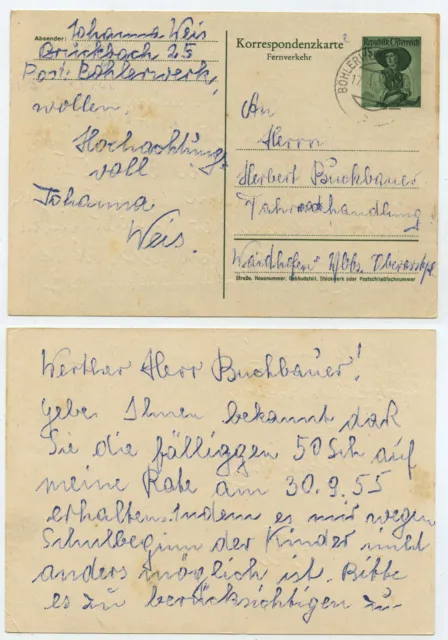 Absender: Johanna Weis
Brückbach 25
Post: Böhlerwerk,
wollen.
Hochachtungs
voll
Johanna
Weis.
Korrespondenzkarte
Fernverkehr
Republik Österreich
BÖHLERWERK
An
Herrn
Herbert Buchbauer
Fahrradhandlung
Waidhofen Ybbs
Straße, Hausnummer, Gebäudeteil, Stiegenwerk oder Postschließfachnummer
Werther Herr Buchbauer!
Gebe Ihnen bekannt daß
Sie die fälliggen 50 Sch auf
meine Rate am 30.9.55
erhalten. Indem es mir wegen
Schulbeginn der Kinder nicht
anders möglich ist. Bitte
es zu berücksichtigen zu